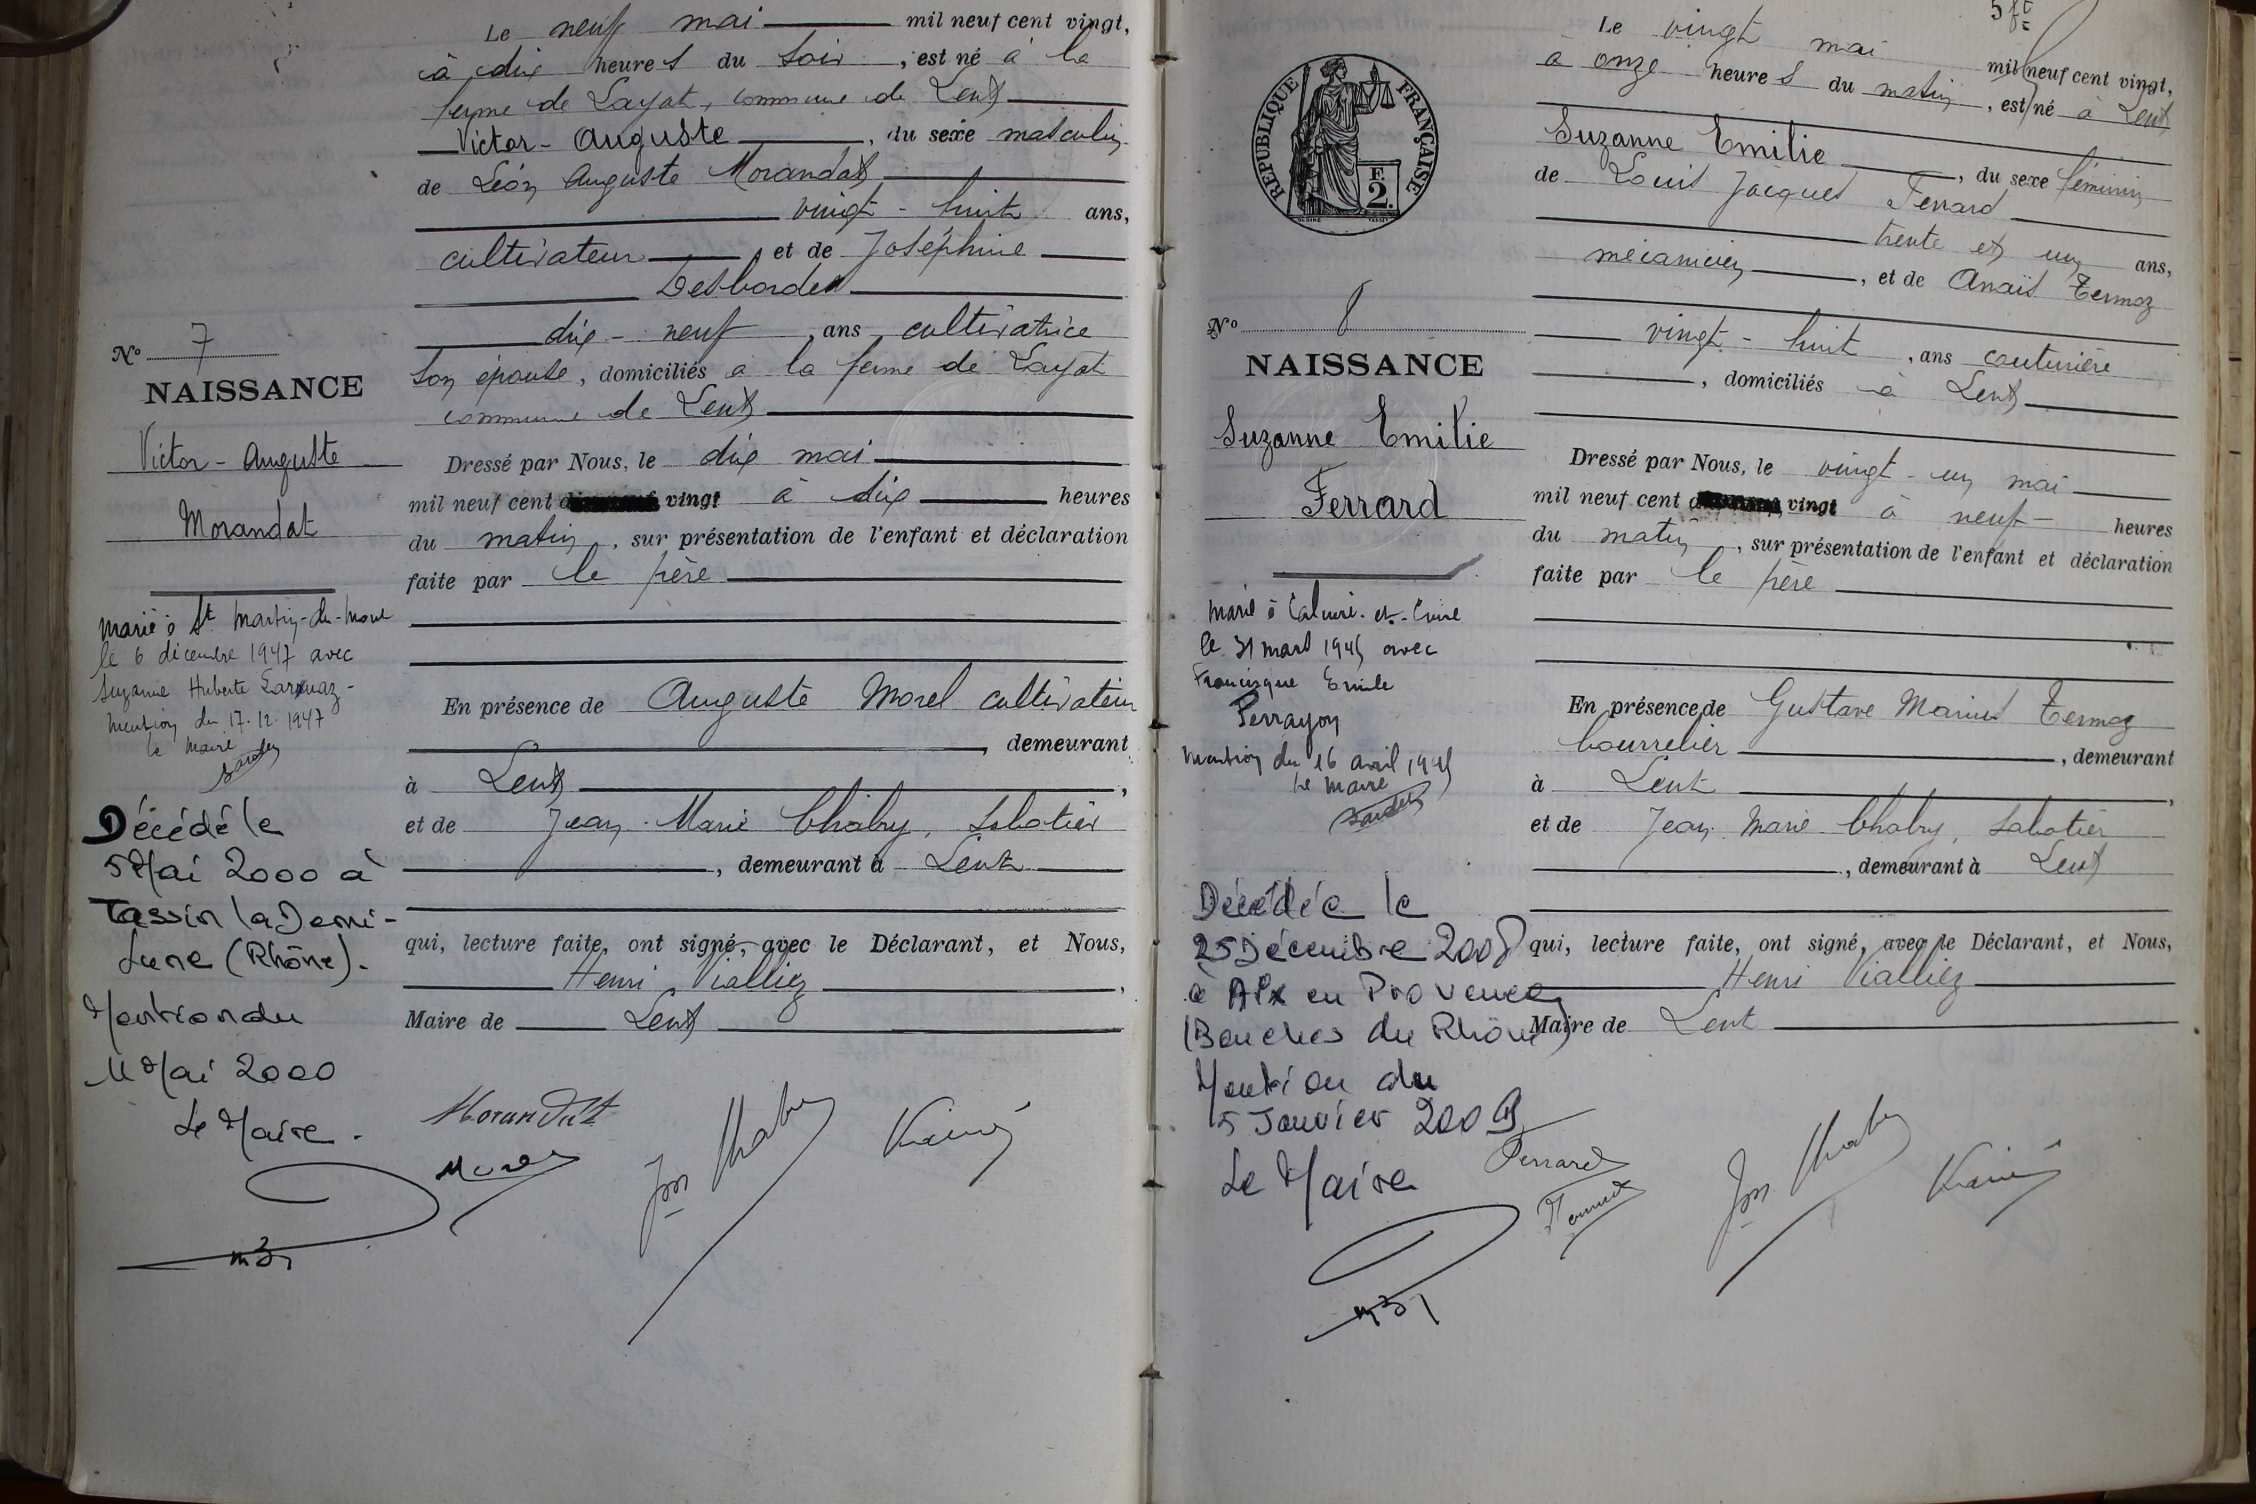 Le neuf mai mil neuf cent vingt,
à dix heures du soir, est né à la
ferme de Layat, commune de Lent
Victor-Auguste, du sexe masculin
de Léon Auguste Morandat
vingt-huit ans,
cultivateur, et de Joséphine
Desbordes
dix-neuf, ans cultivatrice
son épouse, domiciliés à la ferme de Layat
commune de Lent
Dressé par Nous, le dix mai
mil neuf cent vingt à dix heures
du matin, sur présentation de l'enfant et déclaration
faite par le père
En présence de Auguste Morel cultivateur
, demeurant
à Lent,
et de Jean-Marie Chabry, sabotier
, demeurant à Lent
qui, lecture faite, ont signé, avec le Déclarant, et Nous,
Henri Vialliez,
Maire de Lent
Morandat
Morel
Jm Chabry
No 7
NAISSANCE
Victor-Auguste
Morandat
Marié à St Martin-du-Mont
le 6 décembre 1947 avec
Suzanne Huberte
Mention du 17.12.1947
le Maire
Décédé le
5 Mai 2000 à
Tassin la Demi-
Lune (Rhône).
Mention du
11 Mai 2000
Le Maire.
5 ft
Le vingt mai mil neuf cent vingt,
à onze heures du matin, est né à Lent
Suzanne Emilie, du sexe féminin
de Louis Jacques Ferrard
trente et un ans,
mécanicien, et de Anaïs Termoz
vingt-huit, ans couturière
, domiciliés à Lent
Dressé par Nous, le vingt-un mai
mil neuf cent vingt à neuf heures
du matin, sur présentation de l'enfant et déclaration
faite par le père
En présence de Gustave Marius Termoz
bourrelier, demeurant
à Lent,
et de Jean Marie Chabry, sabotier
, demeurant à Lent
qui, lecture faite, ont signé, avec le Déclarant, et Nous,
Henri Vialliez
Maire de Lent
Ferrard
Jm Chabry
RÉPUBLIQUE FRANÇAISE
F.
2.
No 8
NAISSANCE
Suzanne Emilie
Ferrard
Marié à Caluire-et-Cuire
le 31 mars 1945 avec
Francisque Emile
Perrayon
Mention du 16 avril 1945
Le Maire
Décédée le
25 Décembre 2008
à Aix en Provence
(Bouches du Rhône)
Mention du
5 Janvier 2009
Le Maire